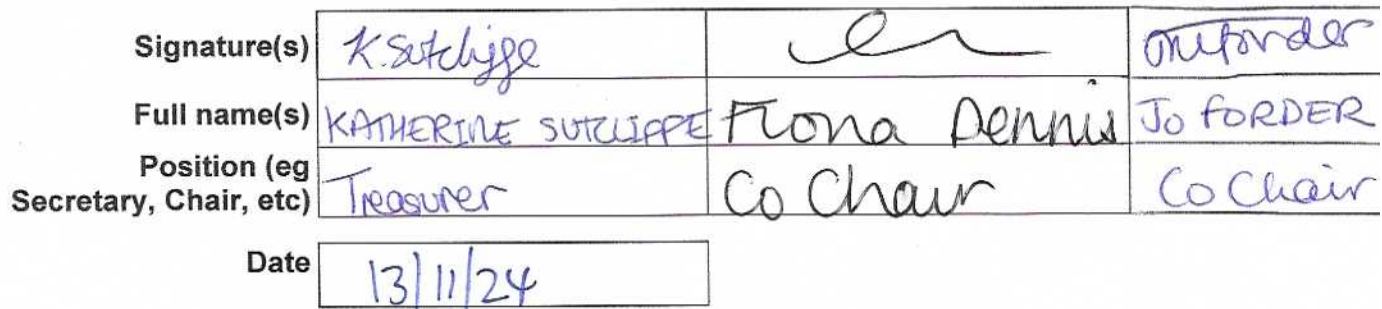 Signature(s) K.Sutcliffe
Full name(s) KATHERINE SUTCLIFFE Fiona Dennis JO FORDER
Position (eg
Secretary, Chair, etc) Treasurer Co Chair Co Chair
Date 13/11/24